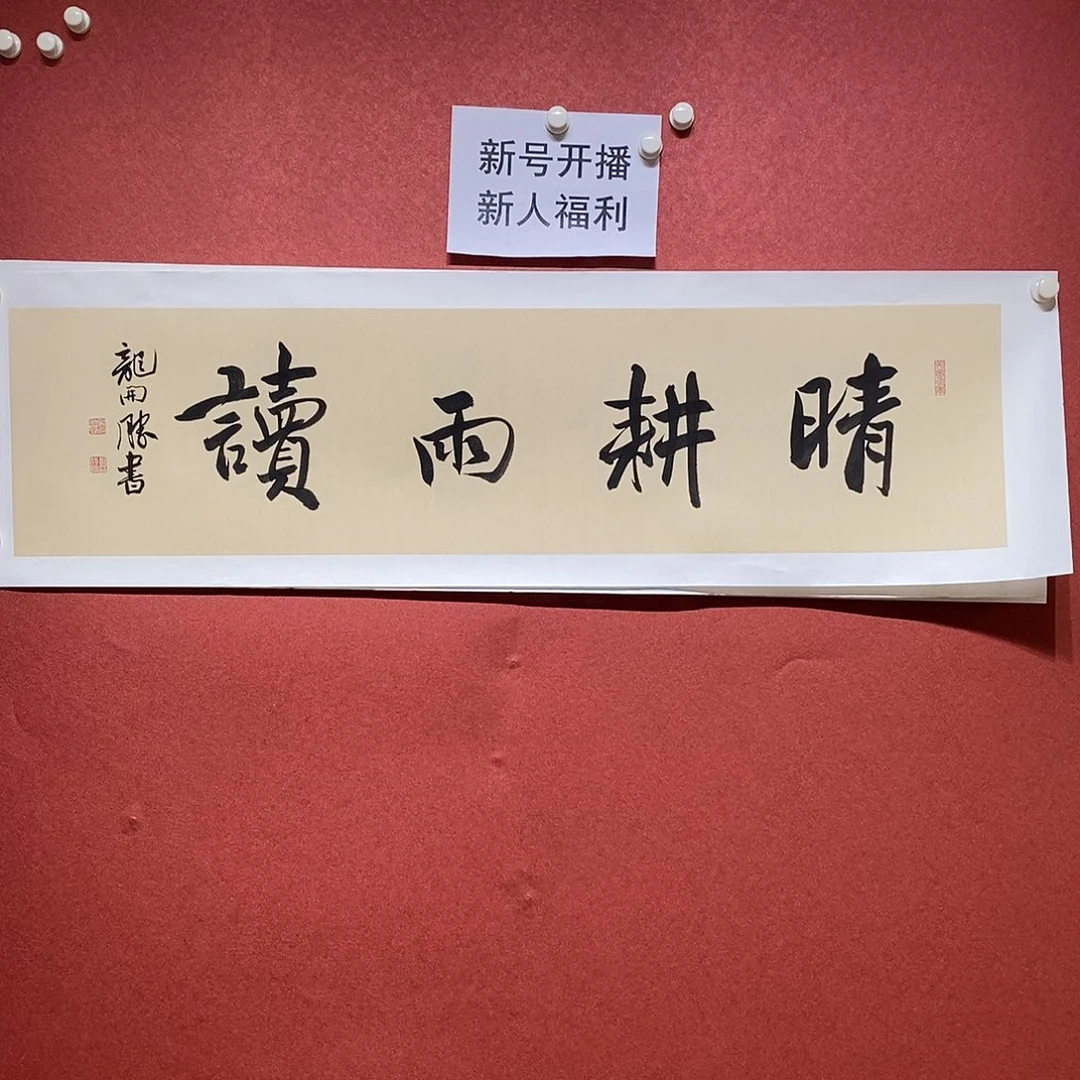 新号开播
新人福利
晴耕雨讀
龍開勝書